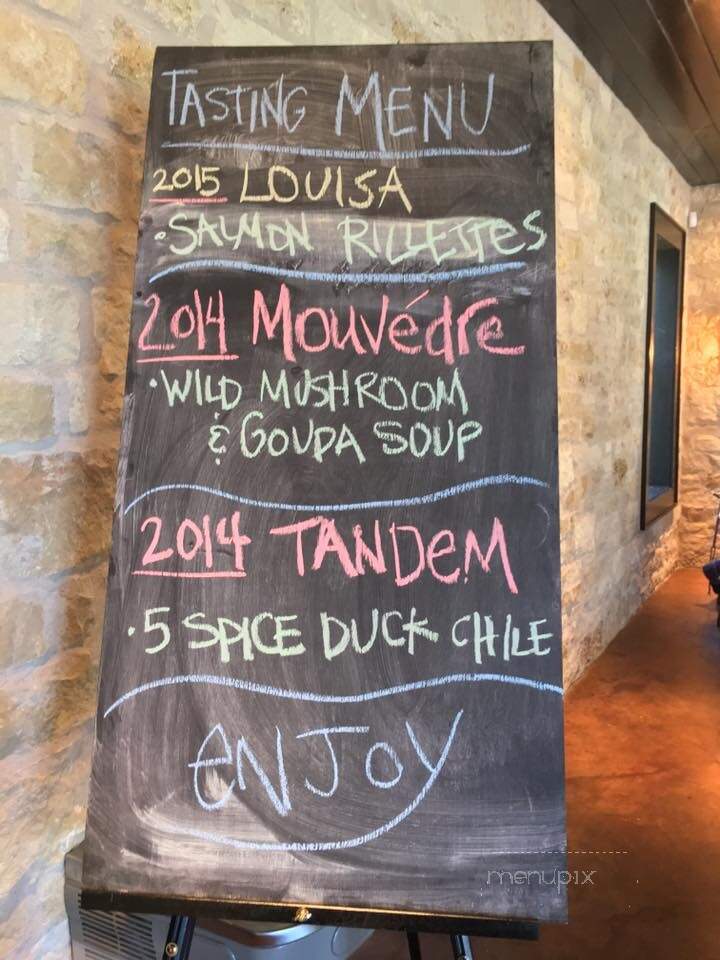 TASTING MENU
2015 LOUISA
• SALMON RILLETTES
2014 Mouvédre
• WILD MUSHROOM
& GOUDA SOUP
2014 TANDEM
• 5 SPICE DUCK CHILE
ENJOY
menupix